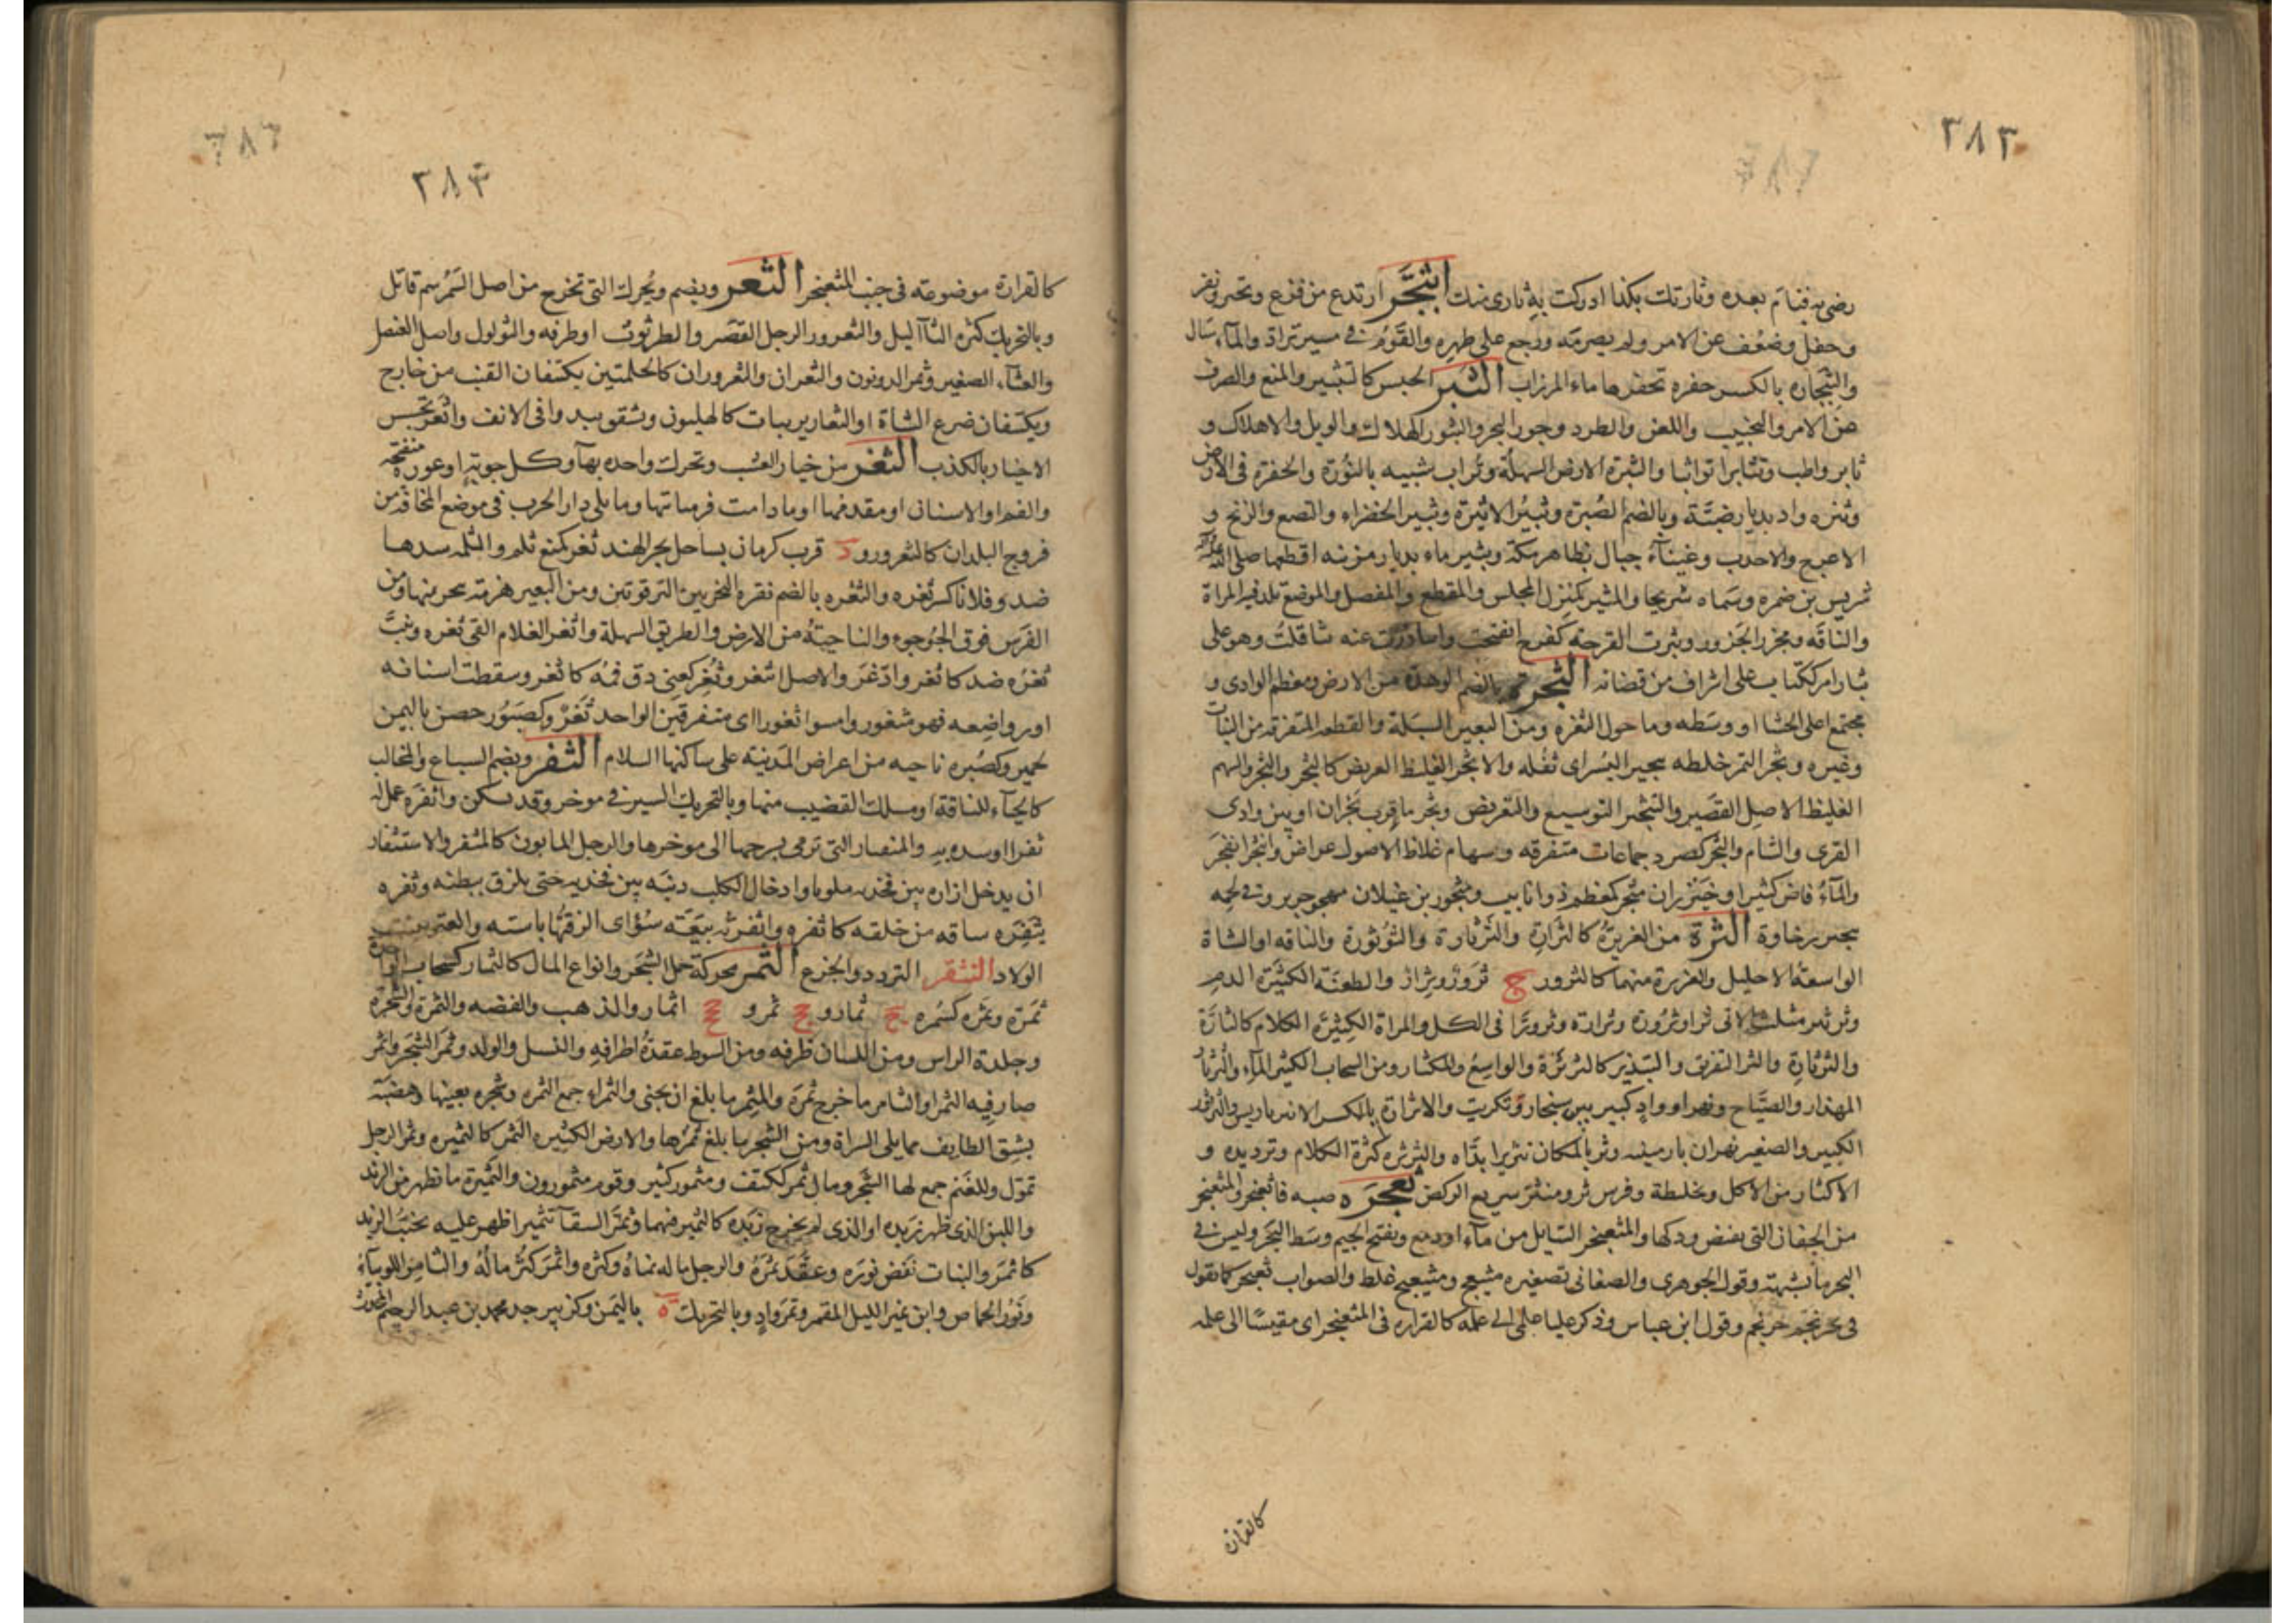 ٢٨٢
رضى به فنام بعده وثارتك بكذا ادركت به ثارى منك اثبجر ارتدع من فزع وتحير ونفر
وجفل وضعف عن الامر ولم يصرمه ورجع على ظهره والقوم فى مسير تراد والمآء سال
والثبجاره بالكسر حفره تحفرها ماء المرزاب الثبر الحبس كالتثبير والمنع والصرف
عن الامر والتخييب واللعن والطرد وجزر البحر والثبور الهلاك والويل والاهلاك و
ثابر واطب وتثابرا تواثبا والثبرة الارض السهلة وتراب شبيه بالنورة والحفرة فى الارض
وثبره واد بديار ضبة وبالضم الصبرة وثبير الاثبرة وثبير الخضراء والنصع والزنج و
الاعرج والاحدب وغيناء جبال بظاهر مكة وثبير ماء بديار مزينه اقطعها صلى الله
شريس بن ضمره وسماه شريحا والمثبر كمنزل المجلس والمقطع والمفصل والموضع تلد فيه المراة
والناقه ومجزر الجزور وثبرت القرحه كفرح انفتحت واثباررت عنه تثاقلت وهو على
ثبار امر ككتاب على اشراف من قضائه الثجرة بالضم الوهدة من الارض ومعظم الوادى و
مجتمع اعلى الحشا او وسطه وما حول الثغره ومن البعير السبلة والقطعه المتفرقه من النبات
وغيره وثجر التمر خلطه بثجير البسر اى ثفله والاثجر الغليظ العريض كالثجر والثجر والسهم
الغليظ الاصل القصير والتثجير التوسيع والتعريض وثجر ما قرب نجران او بين وادى
القرى والشام والثجر كصرد جماعات متفرقه وسهام غلاظ الاصول عراض وانثجر انفجر
والمآء فاض كثيرا وخيزران مثجر كمعظم ذو انابيب ومثجور بن غيلان مهجو جرير وفى لحمه
تثجير رخاوة الثرة من الغزيرة كالثرارة والثرثارة والثرثورة والناقه او الشاة
الواسعة الاحليل والغزيرة منهما كالثرور ج ثرور وثرار والطعنة الكثيرة الدم
وثر يثر مثلثة الاتى ثرا وثرورة وثرارة وثرورا فى الكل والمراة الكثيرة الكلام كالثارة
والثرثارة والثر التفريق والتبذير كالثرثرة والواسع والمكثار ومن السحاب الكثير المآء والثرثار
المهذار والصياح ونهر او واد كبير بين سنجار وتكريت والاثرارة بالكسر الانبرباريس والثرثور
الكبير والصغير نهران بارمينيه وثر بالمكان تثريرا نداه والثرثره كثرة الكلام وترديده و
الاكثار من الاكل وتخليطه وفرس ثر ومنثر سريع الركض ثعجره صبه فاثعنجر والمثعنجر
من الجفان التى يفيض ودكها والمثعنجر السايل من مآء او دمع وبفتح الجيم وسط البحر وليس فى
البحر ما يشبهه وقول الجوهرى والصغانى تصغيره مثيعج ومثيعيج غلط والصواب ثعيجر كما تقول
فى محرنجم حريجم وقول ابن عباس وذكر عليا علمى الى علمه كالقراره فى المثعنجر اى مقيسا الى علمه
كالقرارة
٢٨٣
كالقرارة موضوعه فى جنب المثعنجر الثعر ويضم ويحرك التى تخرج من اصل السمر سم قاتل
وبالتحريك كثره الثآليل والثعرور الرجل القصير والطرثوث او طرفه والثؤلول واصل العنصل
والقثاء الصغير وثمر الدونون والثعران والثعروران كالحلمتين يكتنفان القنب من خارج
ويكتنفان ضرع الشاة او الثعارير نبات كالهليون وتشقق يبدو فى الانف واثعر تجسس
الاخبار بالكذب الثغر من خيار العشب وتحرك واحده بهآ وكل جوبة او عورة منفتحه
والفم او الاسنان او مقدمها او ما دامت فى منابتها وما يلى دار الحرب فى موضع المخافة من
فروج البلدان كالثغرور و د قرب كرمان بساحل بحر الهند ثغر كمنع ثلم والثلمه سدها
ضد وفلانا كسر ثغره والثغره بالضم نقره النحر بين الترقوتين ومن البعير هزمته ينحر منها ومن
الفرس فوق الجؤجوء والناحية من الارض والطريق السهلة واثغر الغلام القى ثغره ونبت
ثغره ضد كاثغر وادغر والاصل اثتغر وثغر كعنى دق فمه كاثغر وسقطت اسنانه
او رواضعه فهو مثغور وامسوا ثغورا اى متفرقين الواحد ثغر وكصبور حصن باليمن
لحمير وكصبره ناحيه من اعراض المدينه على ساكنها السلام الثفر ويضم للسباع والمخالب
كالحيآء للناقة او مسلك القضيب منها وبالتحريك السير فى موخر وقد يسكن واثفره عمل له
ثفرا او سده به والمثفار التى ترمى بسرجها الى موخرها والرجل المابون كالمثفر والاستثفار
ان يدخل ازاره بين فخذيه ملويا وادخال الكلب ذنبه بين فخذيه حتى يلزق ببطنه وثفره
يثفره ساقه من خلفه كاثفره واثفرته بيعة سؤاى الزقها باسته والعنز بينت
الولاد التثقر التردد والجزع الثمر محركة حمل الشجر وانواع المال كالثمار كسحاب الواحدة
ثمرة وثمره كسمره ج ثمار وجج ثمر و ججج اثمار والذهب والفضه والثمرة والشجرة
وجلدة الراس ومن اللسان طرفه ومن السوط عقدة اطرافه والنسل والولد وثمر الشجر واثمر
صار فيه الثمر او الثامر ما خرج ثمره والمثمر ما بلغ ان يجنى والثمراء جمع الثمره وشجره بعينها وهضبة
بشق الطايف مما يلى السراة ومن الشجر ما بلغ ثمرها والارض الكثيره الثمر كالثميره وثمر الرجل
تمول وللغنم جمع لها الشجر ومال ثمر ككتف ومثمور كثير وقوم مثمورون والثميرة ما يظهر من الزبد
واللبن الذى ظهر زبده او الذى لم يخرج زبده كالثمير فيهما وثمر السقآ تثميرا ظهر عليه تحبب الزبد
كاثمر والنبات نفض نوره وعقد ثمره والرجل ماله نماه وكثره واثمر كثر ماله والثامر اللوبيآء
ونور الحماض وابن ثمير الليل المقمر وثمر واد وبالتحريك ه باليمن وكزبير جد محمد بن عبد الرحيم المحدث